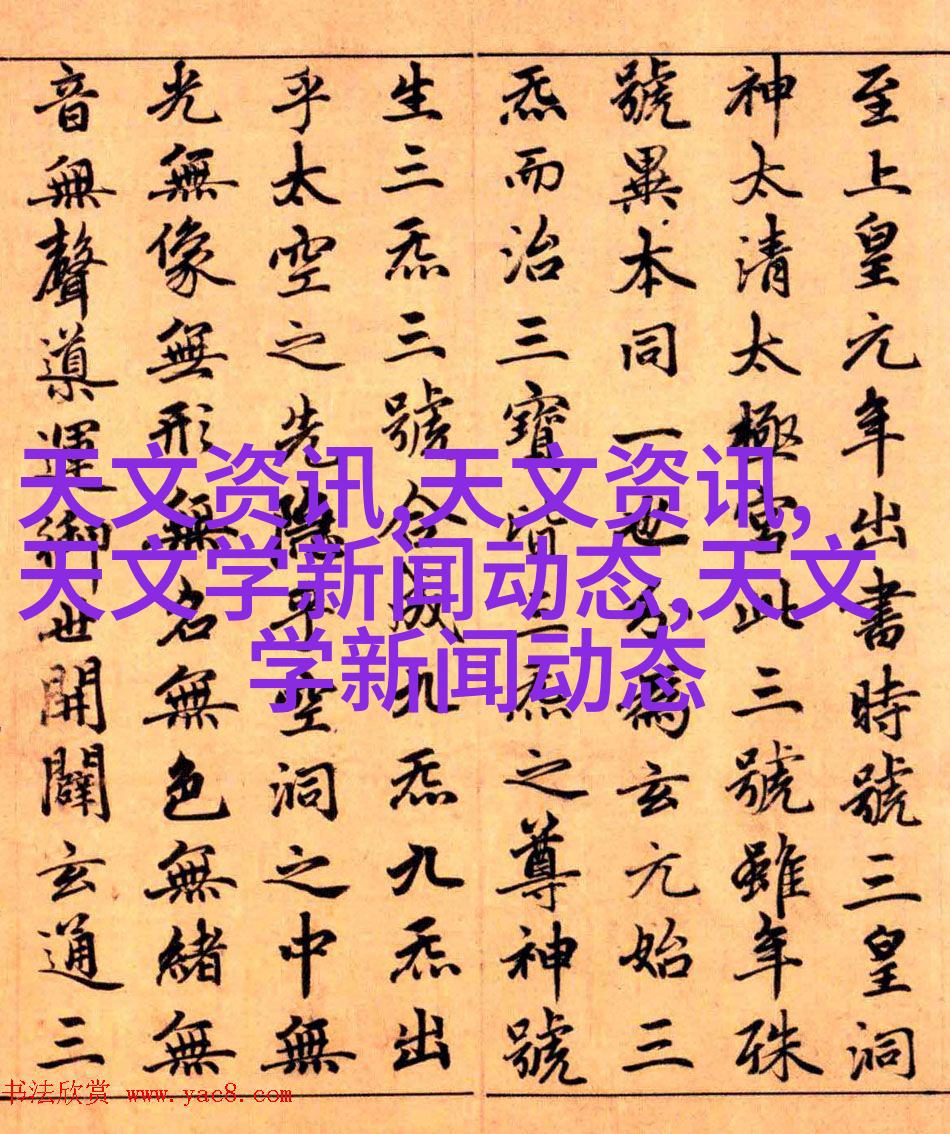 至上皇元年出書時號三皇洞
神太清太極宮此三號雖年殊
號異本同一也分爲玄元始三
炁而治三寶皆三炁之尊神號
生三炁三號合成九炁九炁出
乎太空之先隱乎空洞之中無
光無像無形無名無色無緒無
音無聲導運御世開闢玄通三
天文资讯,天文资讯,
天文学新闻动态,天文
学新闻动态
书法欣赏 www.yac8.com